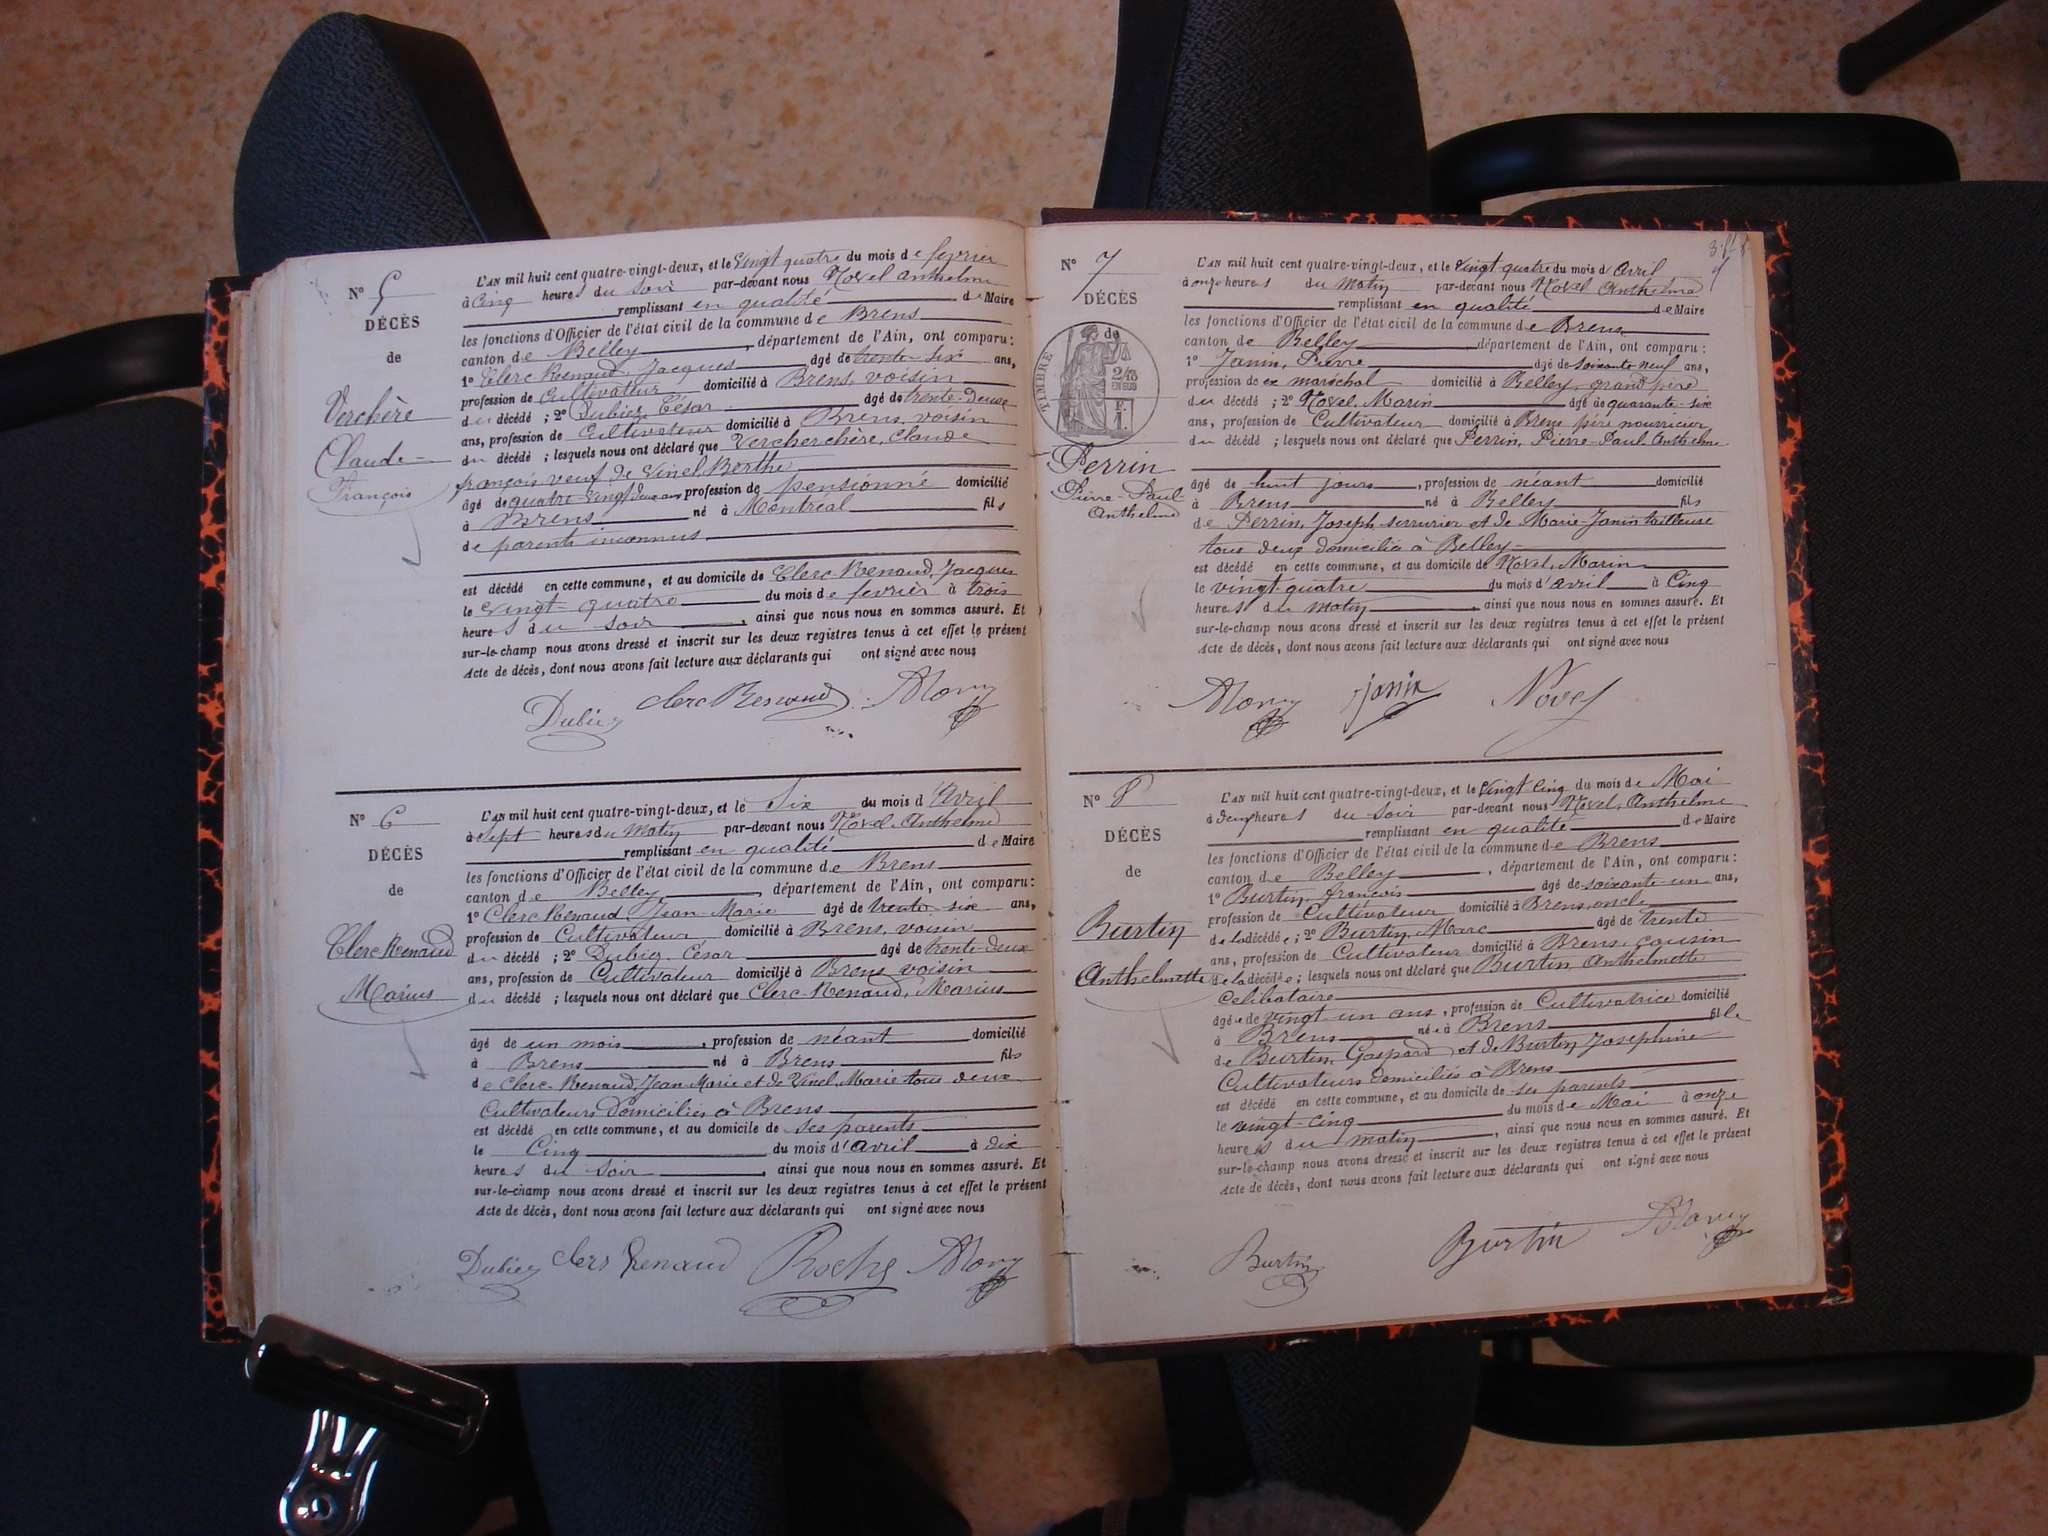 Nº 5
DÉCÈS
de
Verchère
Claude
François
L'AN mil huit cent quatre-vingt-deux, et le vingt quatre du mois de fevrier
à Cinq heures du soir par-devant nous Novel Anthelme
remplissant en qualité de Maire
les fonctions d'Officier de l'état civil de la commune de Brens
canton de Belley, département de l'Ain, ont comparu:
1º Clerc Renaud, Jacques âgé de trente six ans,
profession de Cultivateur domicilié à Brens, voisin
du décédé; 2º Dubiez César âgé de trente-deux
ans, profession de Cultivateur domicilié à Brens, voisin
du décédé; lesquels nous ont déclaré que Vercherchère, Claude
françois veuf de Vinel Berthe
âgé de quatre vingt deux ans profession de pensionné domicilié
à Brens né à Montréal fils
de parents inconnus
est décédé en cette commune, et au domicile de Clerc-Renaud, Jacques
le vingt-quatre du mois de fevrier à trois
heures du soir, ainsi que nous nous en sommes assuré. Et
sur-le-champ nous avons dressé et inscrit sur les deux registres tenus à cet effet le présent
Acte de décès, dont nous avons fait lecture aux déclarants qui ont signé avec nous
Dubiez clerc Renaud
Nº 6
DÉCÈS
de
Clerc Renaud
Marius
L'AN mil huit cent quatre-vingt-deux, et le Six du mois d'Avril
à Sept heures du matin par-devant nous Novel Anthelme
remplissant en qualité de Maire
les fonctions d'Officier de l'état civil de la commune de Brens
canton de Belley, département de l'Ain, ont comparu:
1º Clerc Renaud, Jean-Marie âgé de trente-six ans,
profession de Cultivateur domicilié à Brens, voisin
du décédé; 2º Dubiez, César âgé de trente-deux
ans, profession de Cultivateur domicilié à Brens voisin
du décédé; lesquels nous ont déclaré que Clerc-Renaud, Marius
âgé de un mois, profession de néant domicilié
à Brens né à Brens fils
de Clerc-Renaud, Jean Marie et de Vinel, Marie tous deux
Cultivateurs Domiciliés à Brens
est décédé en cette commune, et au domicile de ses parents
le Cinq du mois d'avril à dix
heures du soir, ainsi que nous nous en sommes assuré. Et
sur-le-champ nous avons dressé et inscrit sur les deux registres tenus à cet effet le présent
Acte de décès, dont nous avons fait lecture aux déclarants qui ont signé avec nous
Dubiez clerc Renaud Roche
Nº 7
DÉCÈS
de
TIMBRE
2/10
EN SUS
F.
1.
Perrin
Pierre-Paul-
Anthelme
L'AN mil huit cent quatre-vingt-deux, et le vingt quatre du mois d'avril
à onze heures du matin par-devant nous Novel Anthelme
remplissant en qualité de Maire
les fonctions d'Officier de l'état civil de la commune de Brens
canton de Belley, département de l'Ain, ont comparu:
1º Janin, Pierre âgé de soixante neuf ans,
profession de ex maréchal domicilié à Belley, grand père
du décédé; 2º Novel, Marin âgé de quarante-six
ans, profession de Cultivateur domicilié à Brens père nourricier
du décédé; lesquels nous ont déclaré que Perrin, Pierre-Paul Anthelme
âgé de huit jours, profession de néant domicilié
à Brens né à Belley fils
de Perrin, Joseph serrurier et de Marie Janin tailleuse
tous deux domiciliés à Belley
est décédé en cette commune, et au domicile de Novel, Marin
le vingt-quatre du mois d'avril à Cinq
heures du matin, ainsi que nous nous en sommes assuré. Et
sur-le-champ nous avons dressé et inscrit sur les deux registres tenus à cet effet le présent
Acte de décès, dont nous avons fait lecture aux déclarants qui ont signé avec nous
janin Novel
Nº 8
DÉCÈS
de
Burtin
Anthelmette
L'AN mil huit cent quatre-vingt-deux, et le vingt cinq du mois de Mai
à deux heures du soir par-devant nous Novel, Anthelme
remplissant en qualité de Maire
les fonctions d'Officier de l'état civil de la commune de Brens
canton de Belley, département de l'Ain, ont comparu:
1º Burtin, françois âgé de soixante-un ans,
profession de Cultivateur domicilié à Brens, oncle
de la décédée; 2º Burtin, Marc âgé de trente
ans, profession de Cultivateur domicilié à Brens, cousin
de la décédée; lesquels nous ont déclaré que Burtin, Anthelmette
Celibataire
âgée de vingt-un ans, profession de Cultivatrice domicilié
à Brens née à Brens fille
de Burtin, Gaspard et de Burtin Josephine
Cultivateurs Domiciliés à Brens
est décédé en cette commune, et au domicile de ses parents
le vingt-cinq du mois de Mai à onze
heures du matin, ainsi que nous nous en sommes assuré. Et
sur-le-champ nous avons dressé et inscrit sur les deux registres tenus à cet effet le présent
Acte de décès, dont nous avons fait lecture aux déclarants qui ont signé avec nous
Burtin Burtin